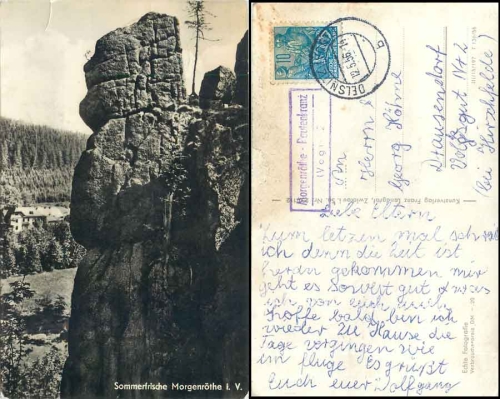 Sommerfrische Morgenröthe i. V.
10
OELSNI
13.5.56-14
b
Morgenröthe-Rautenkranz
(Vogtl.)
An
Herrn
Georg Höhne
Drausendorf
Volksgut Nr 2
(bei Hirschfelde)
Liebe Eltern
zum letzen mal schreib
ich denn die Zeit ist
heran gekommen mir
geht es soweit gut
ich von euch auch
hoffe bald bin ich
wieder zu Hause die
Tage vergingen wie
im fluge Es grüßt
Euch euer Wolfgang
Echte Fotografie